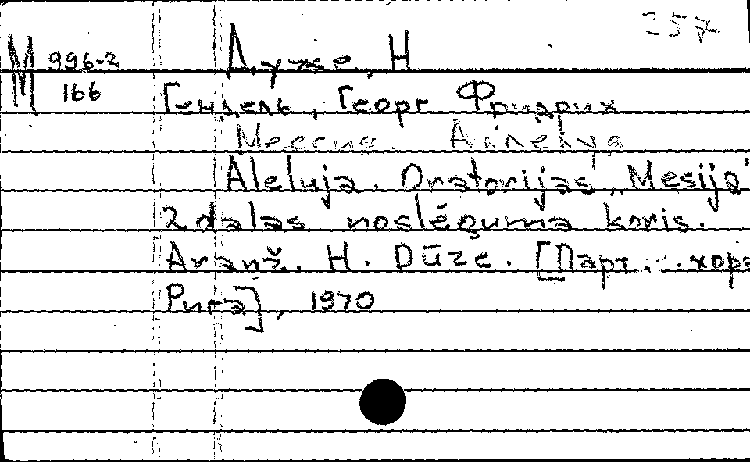 257
М 996-2
166
Дуже, Н
Гендель, Георг Фридрих
Мессия. Аллелуя
Aleluja. Oratorijas „Mesija"
2 daļas noslēguma koris.
Aranž. H. Dūze. [Парт. хора
Рига], 1970